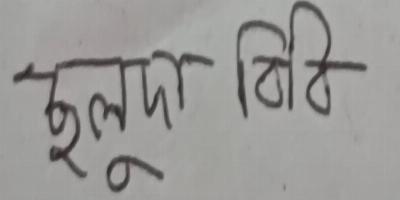 ছুলুদা বিবি